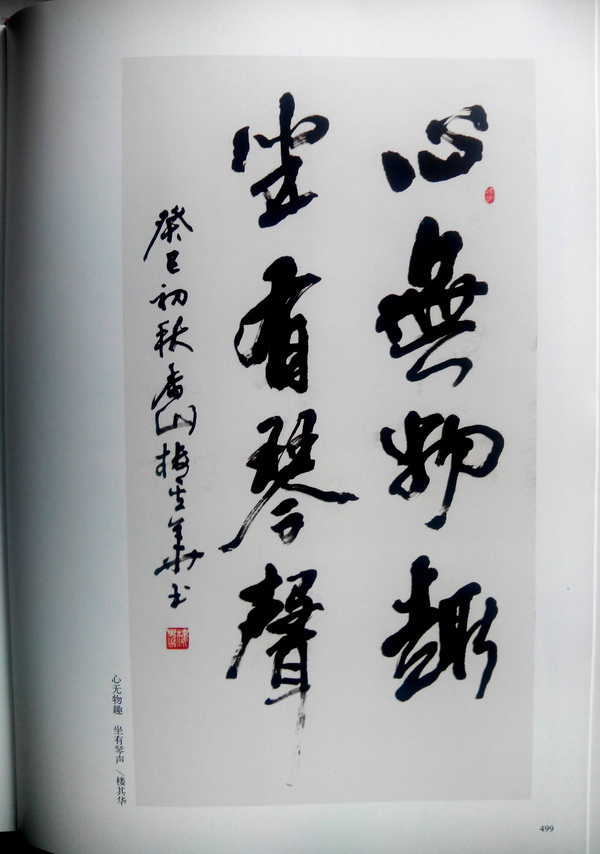 心無物趣
坐有琴聲
癸巳初秋香山楼其華书
心无物趣 坐有琴声／楼其华
499